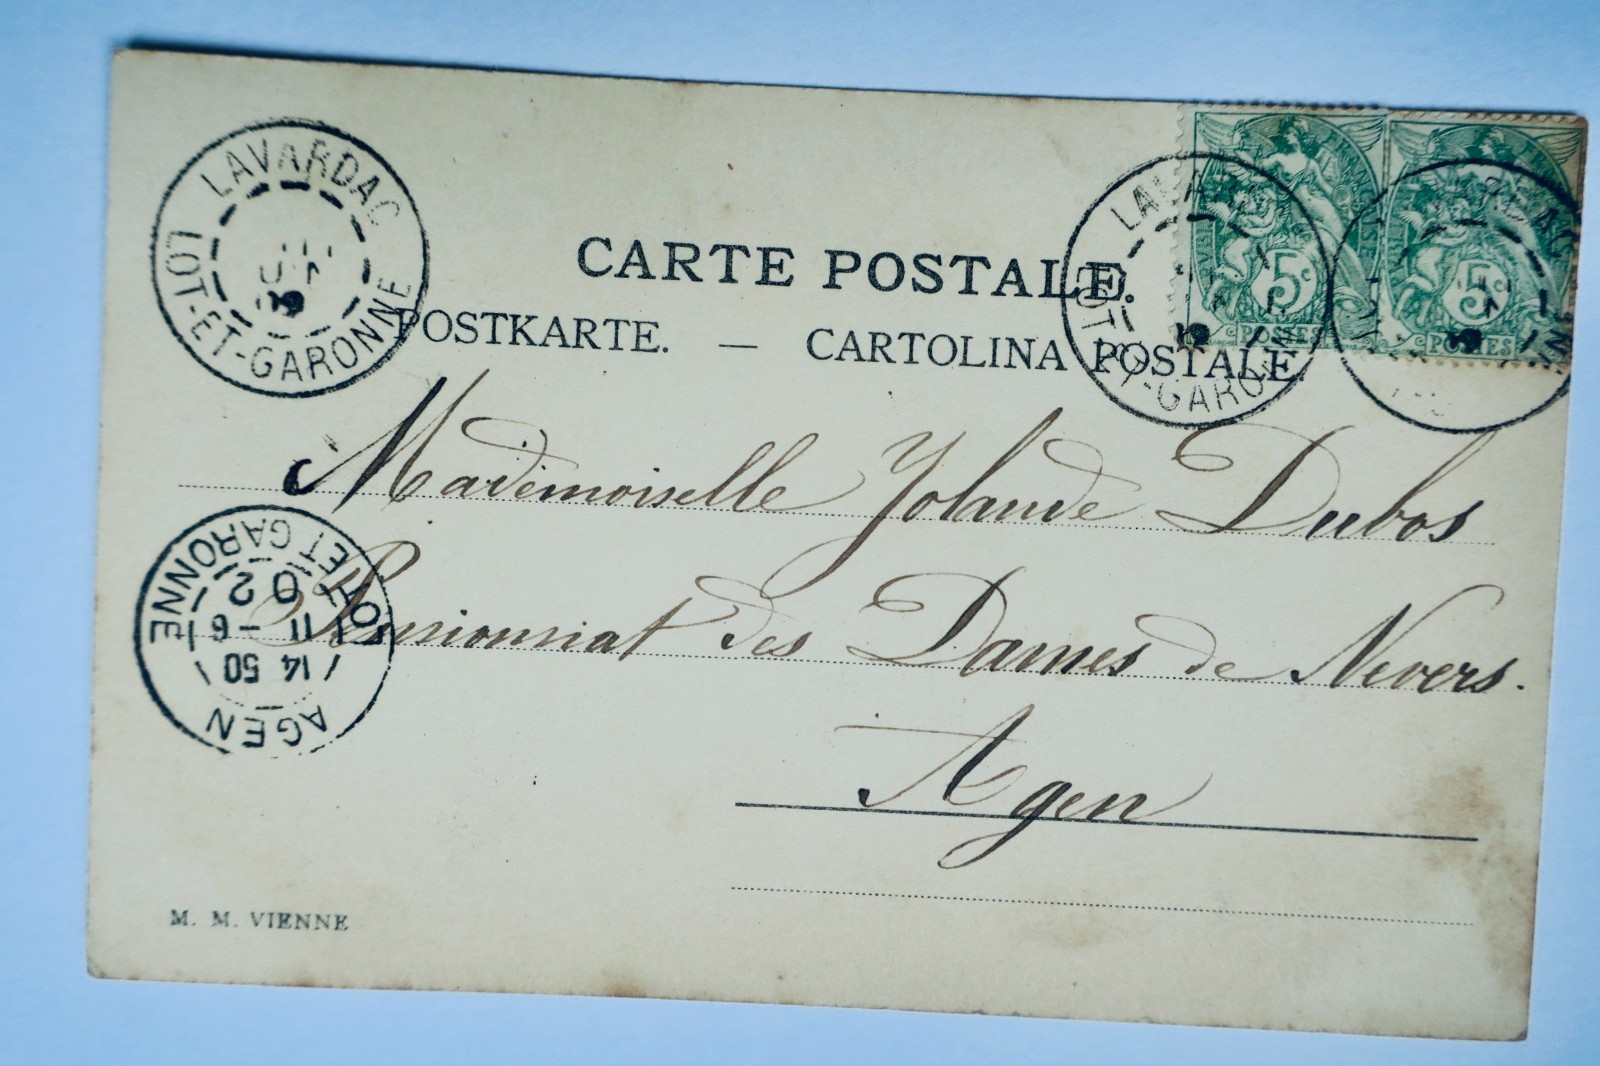 LAVARDAC
LOT-ET-GARONNE
CARTE POSTALE.
POSTKARTE. — CARTOLINA POSTALE.
5c
POSTES
5c
POSTES
LOT-ET-GARONNE
Mademoiselle Yolande Dubos
Pensionnat des Dames de Nevers.
Agen
AGEN
14 50
11 - 6
02
LOT-ET-GARONNE
M. M. VIENNE